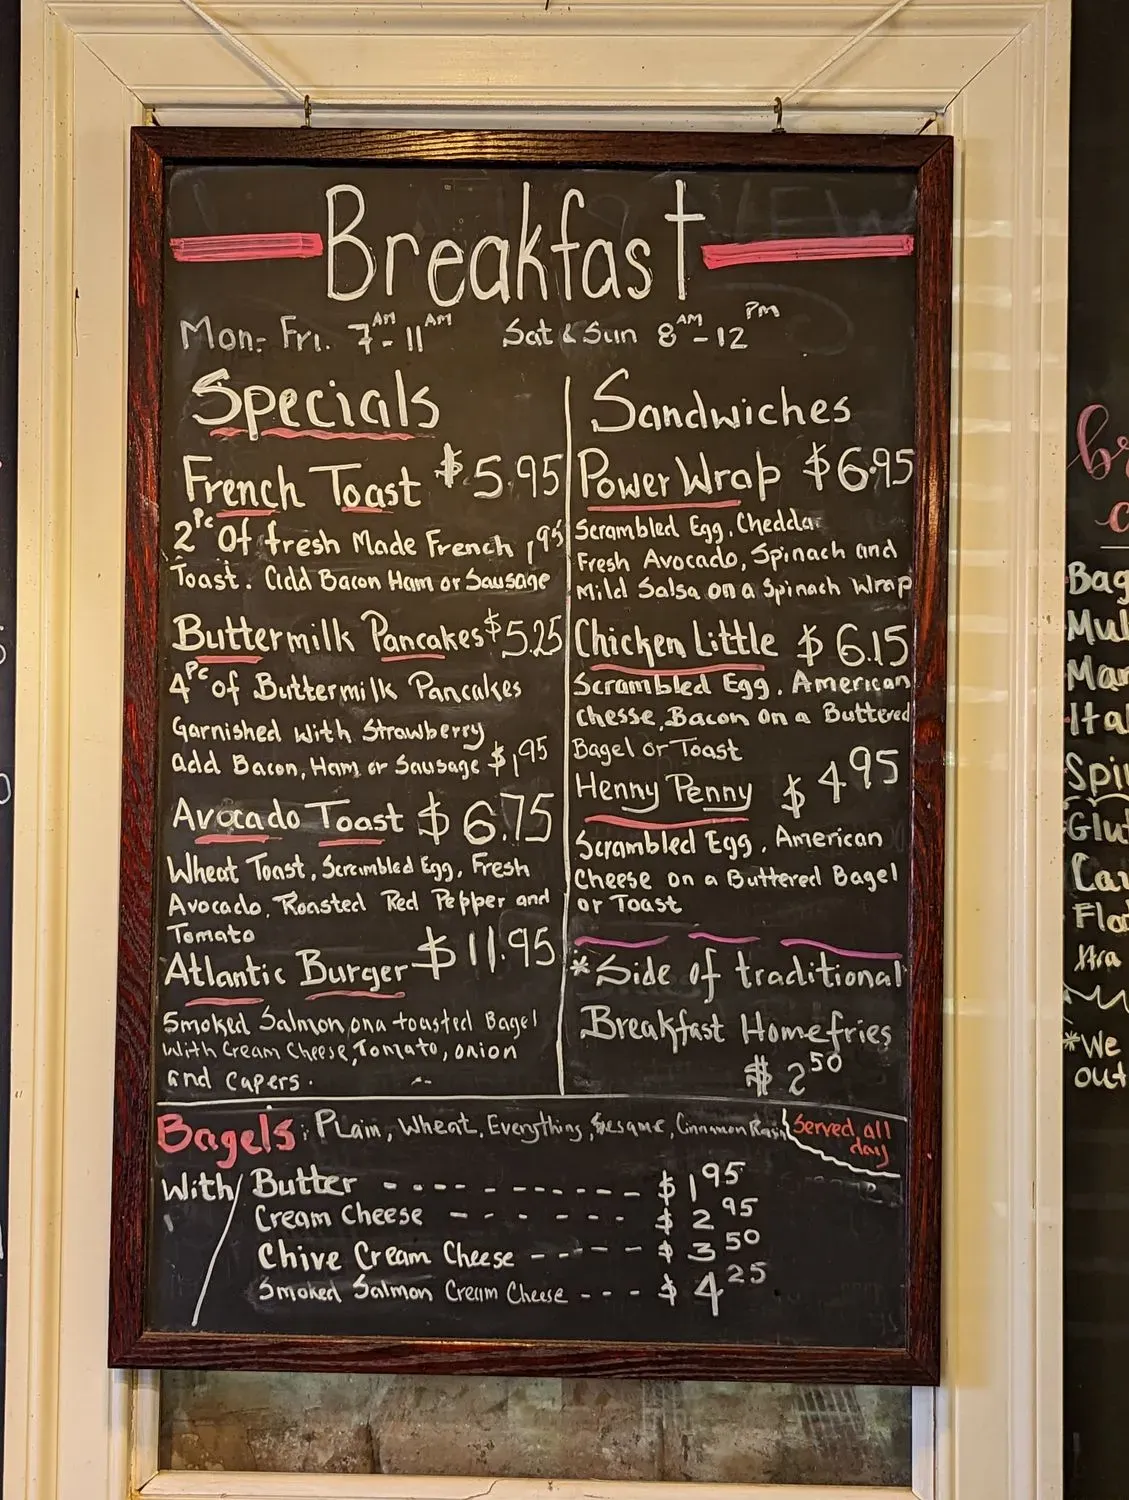 Breakfast
Mon- Fri. 7AM-11AM Sat & Sun 8AM-12PM
Specials
French Toast $5.95
2Pc Of fresh Made French
Toast. add Bacon Ham or Sausage 1.95
Buttermilk Pancakes $5.25
4Pc of Buttermilk Pancakes
Garnished with Strawberry
add Bacon, Ham or Sausage $1.95
Avocado Toast $6.75
Wheat Toast, Scrambled Egg, Fresh
Avocado, Roasted Red Pepper and
Tomato
Atlantic Burger $11.95
Smoked Salmon on a toasted Bagel
with Cream Cheese, Tomato, onion
and capers.
Sandwiches
Power Wrap $6.95
Scrambled Egg, Chedda
Fresh Avocado, Spinach and
Mild Salsa on a Spinach Wrap
Chicken Little $6.15
Scrambled Egg, American
chesse, Bacon on a Buttered
Bagel or Toast
Henny Penny $4.95
Scrambled Egg, American
Cheese on a Buttered Bagel
or Toast
*Side of traditional
Breakfast Homefries
$2.50
Bagels: Plain, Wheat, Everything, Sesame, Cinnamon Raisin
Served all
day
With/ Butter - - - - - - - - - - - - $1.95
Cream Cheese - - - - - - - $2.95
Chive Cream Cheese - - - - - $3.50
Smoked Salmon Cream Cheese - - - $4.25
br
c
Bag
Mul
Mar
Ita
Spi
Glu
Flo
Xtra
*We
out